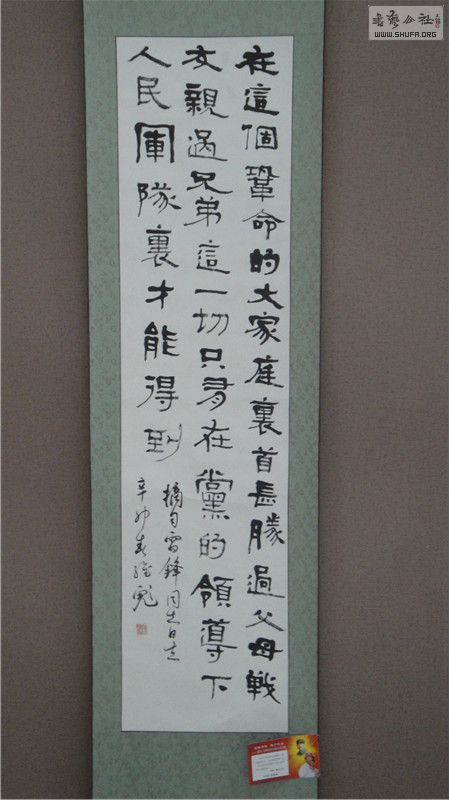 書藝公社
WWW.SHUFA.ORG
在這個鞏命的大家庭裏首長勝過父母戰
友親過兄弟這一切只有在黨的領導下
人民軍隊裏才能得到
摘自雷鋒同志日志
辛卯春